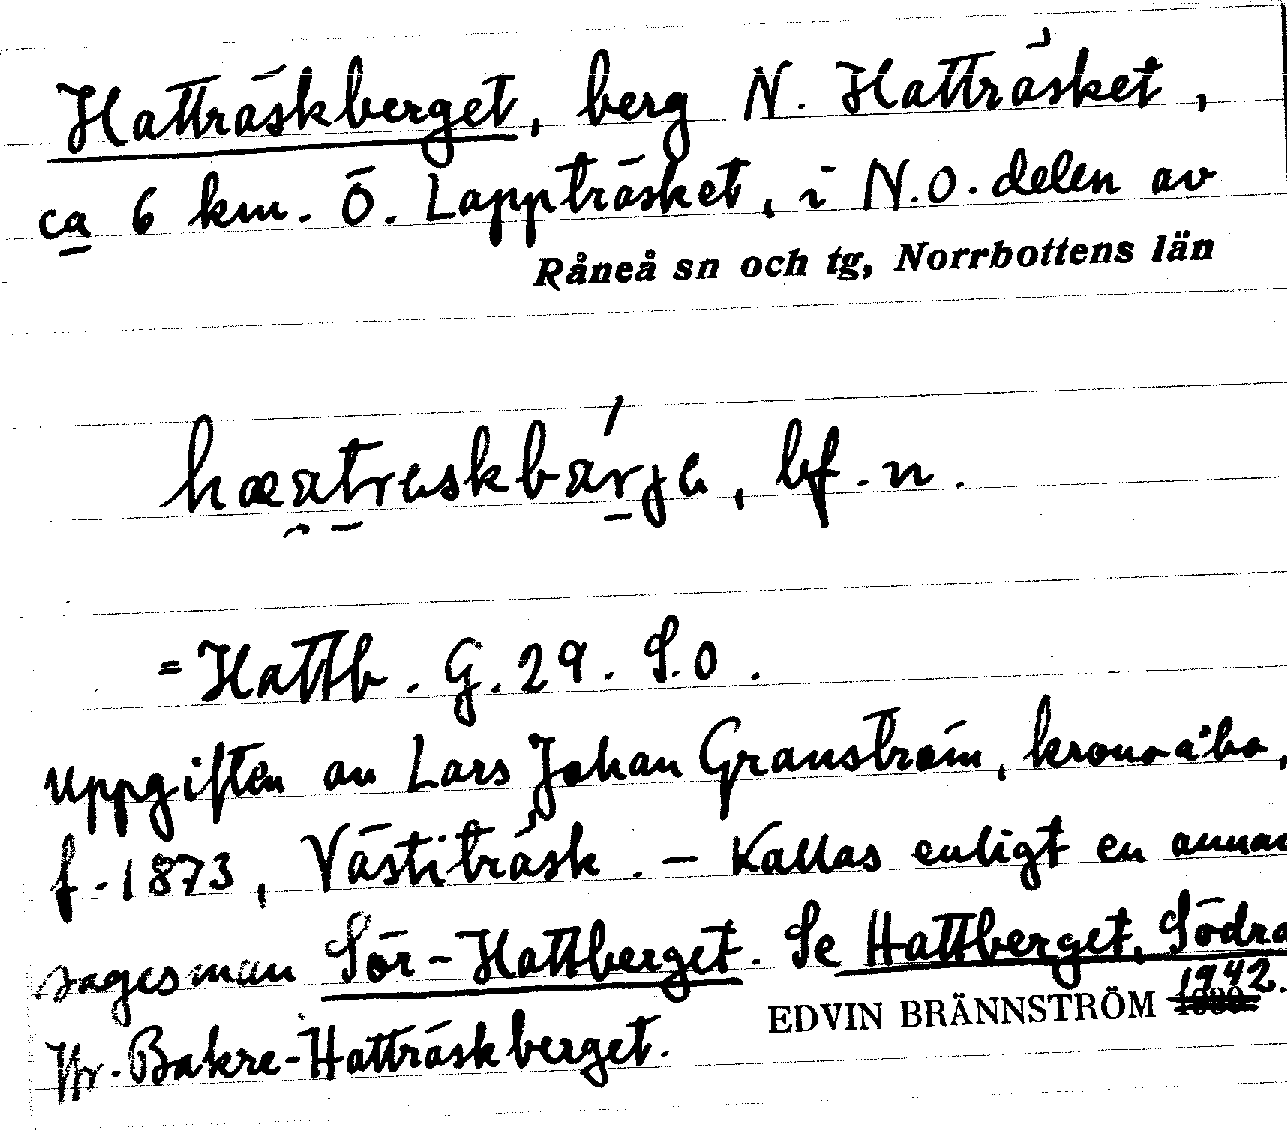 Hatträskberget, berg N. Hatträsket,
ca 6 km. Ö. Lappträsket, i N.O. delen av
Råneå sn och tg, Norrbottens län
bf. n.
= Hattb. G. 29. S.O.
Uppgiften av Lars Johan Granström, kronoåbo,
f. 1873, Västiträsk. – Kallas enligt en annan
sagesman Sör-Hattberget. Se Hattberget, Södra
EDVIN BRÄNNSTRÖM 1942.
Jfr. Bakre-Hatträskberget.